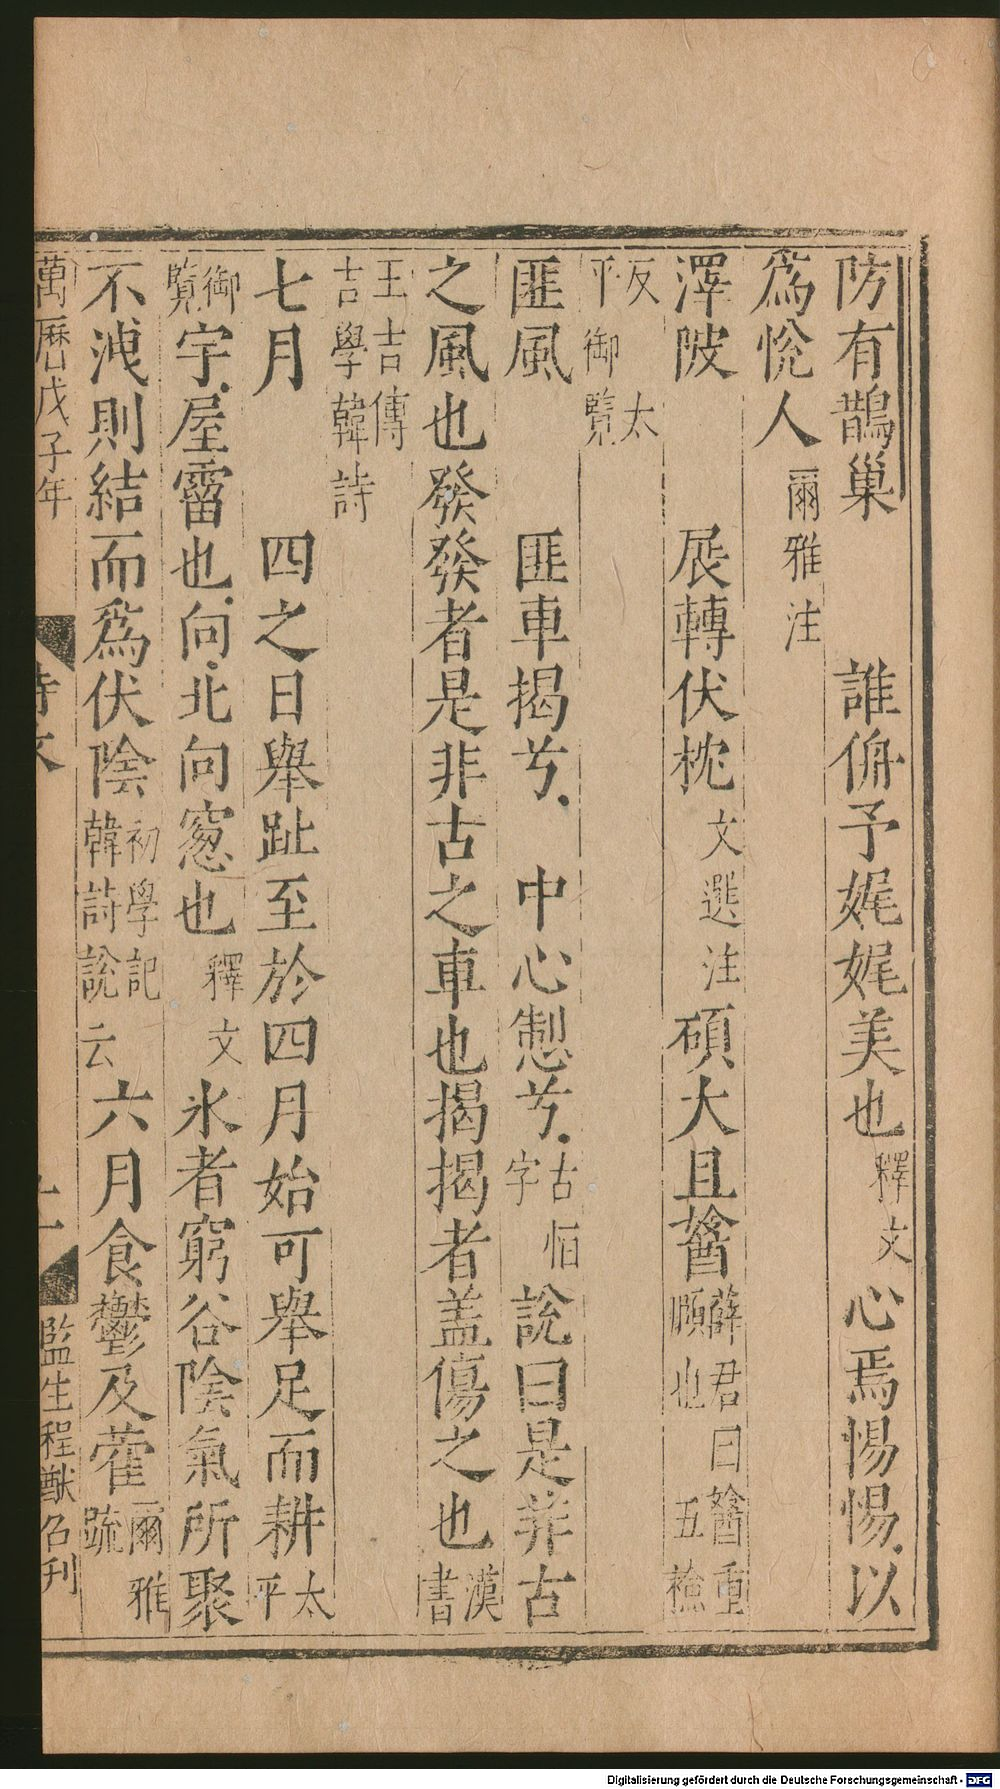 防有鵲巢　誰侜予娓娓美也釋文心焉惕惕以
爲悅人爾雅注
澤陂　展轉伏枕文選注碩大且䤅薛君曰䤅重頤也　五檢
反　太平御覽
匪風　匪車揭兮　中心制心兮古怛字說曰是非古
之風也發發者是非古之車也揭揭者盖傷之也漢書
王吉傳吉學韓詩
七月　四之日舉趾至於四月始可舉足而耕太平
御覽宇屋霤也向北向窻也釋文氷者窮谷陰氣所聚
不洩則結而爲伏陰初學記韓詩說云六月食鬱及藿爾雅疏
萬曆戊子年　詩攷　監生程猷召刊
Digitalisierung gefördert durch die Deutsche Forschungsgemeinschaft - DFG